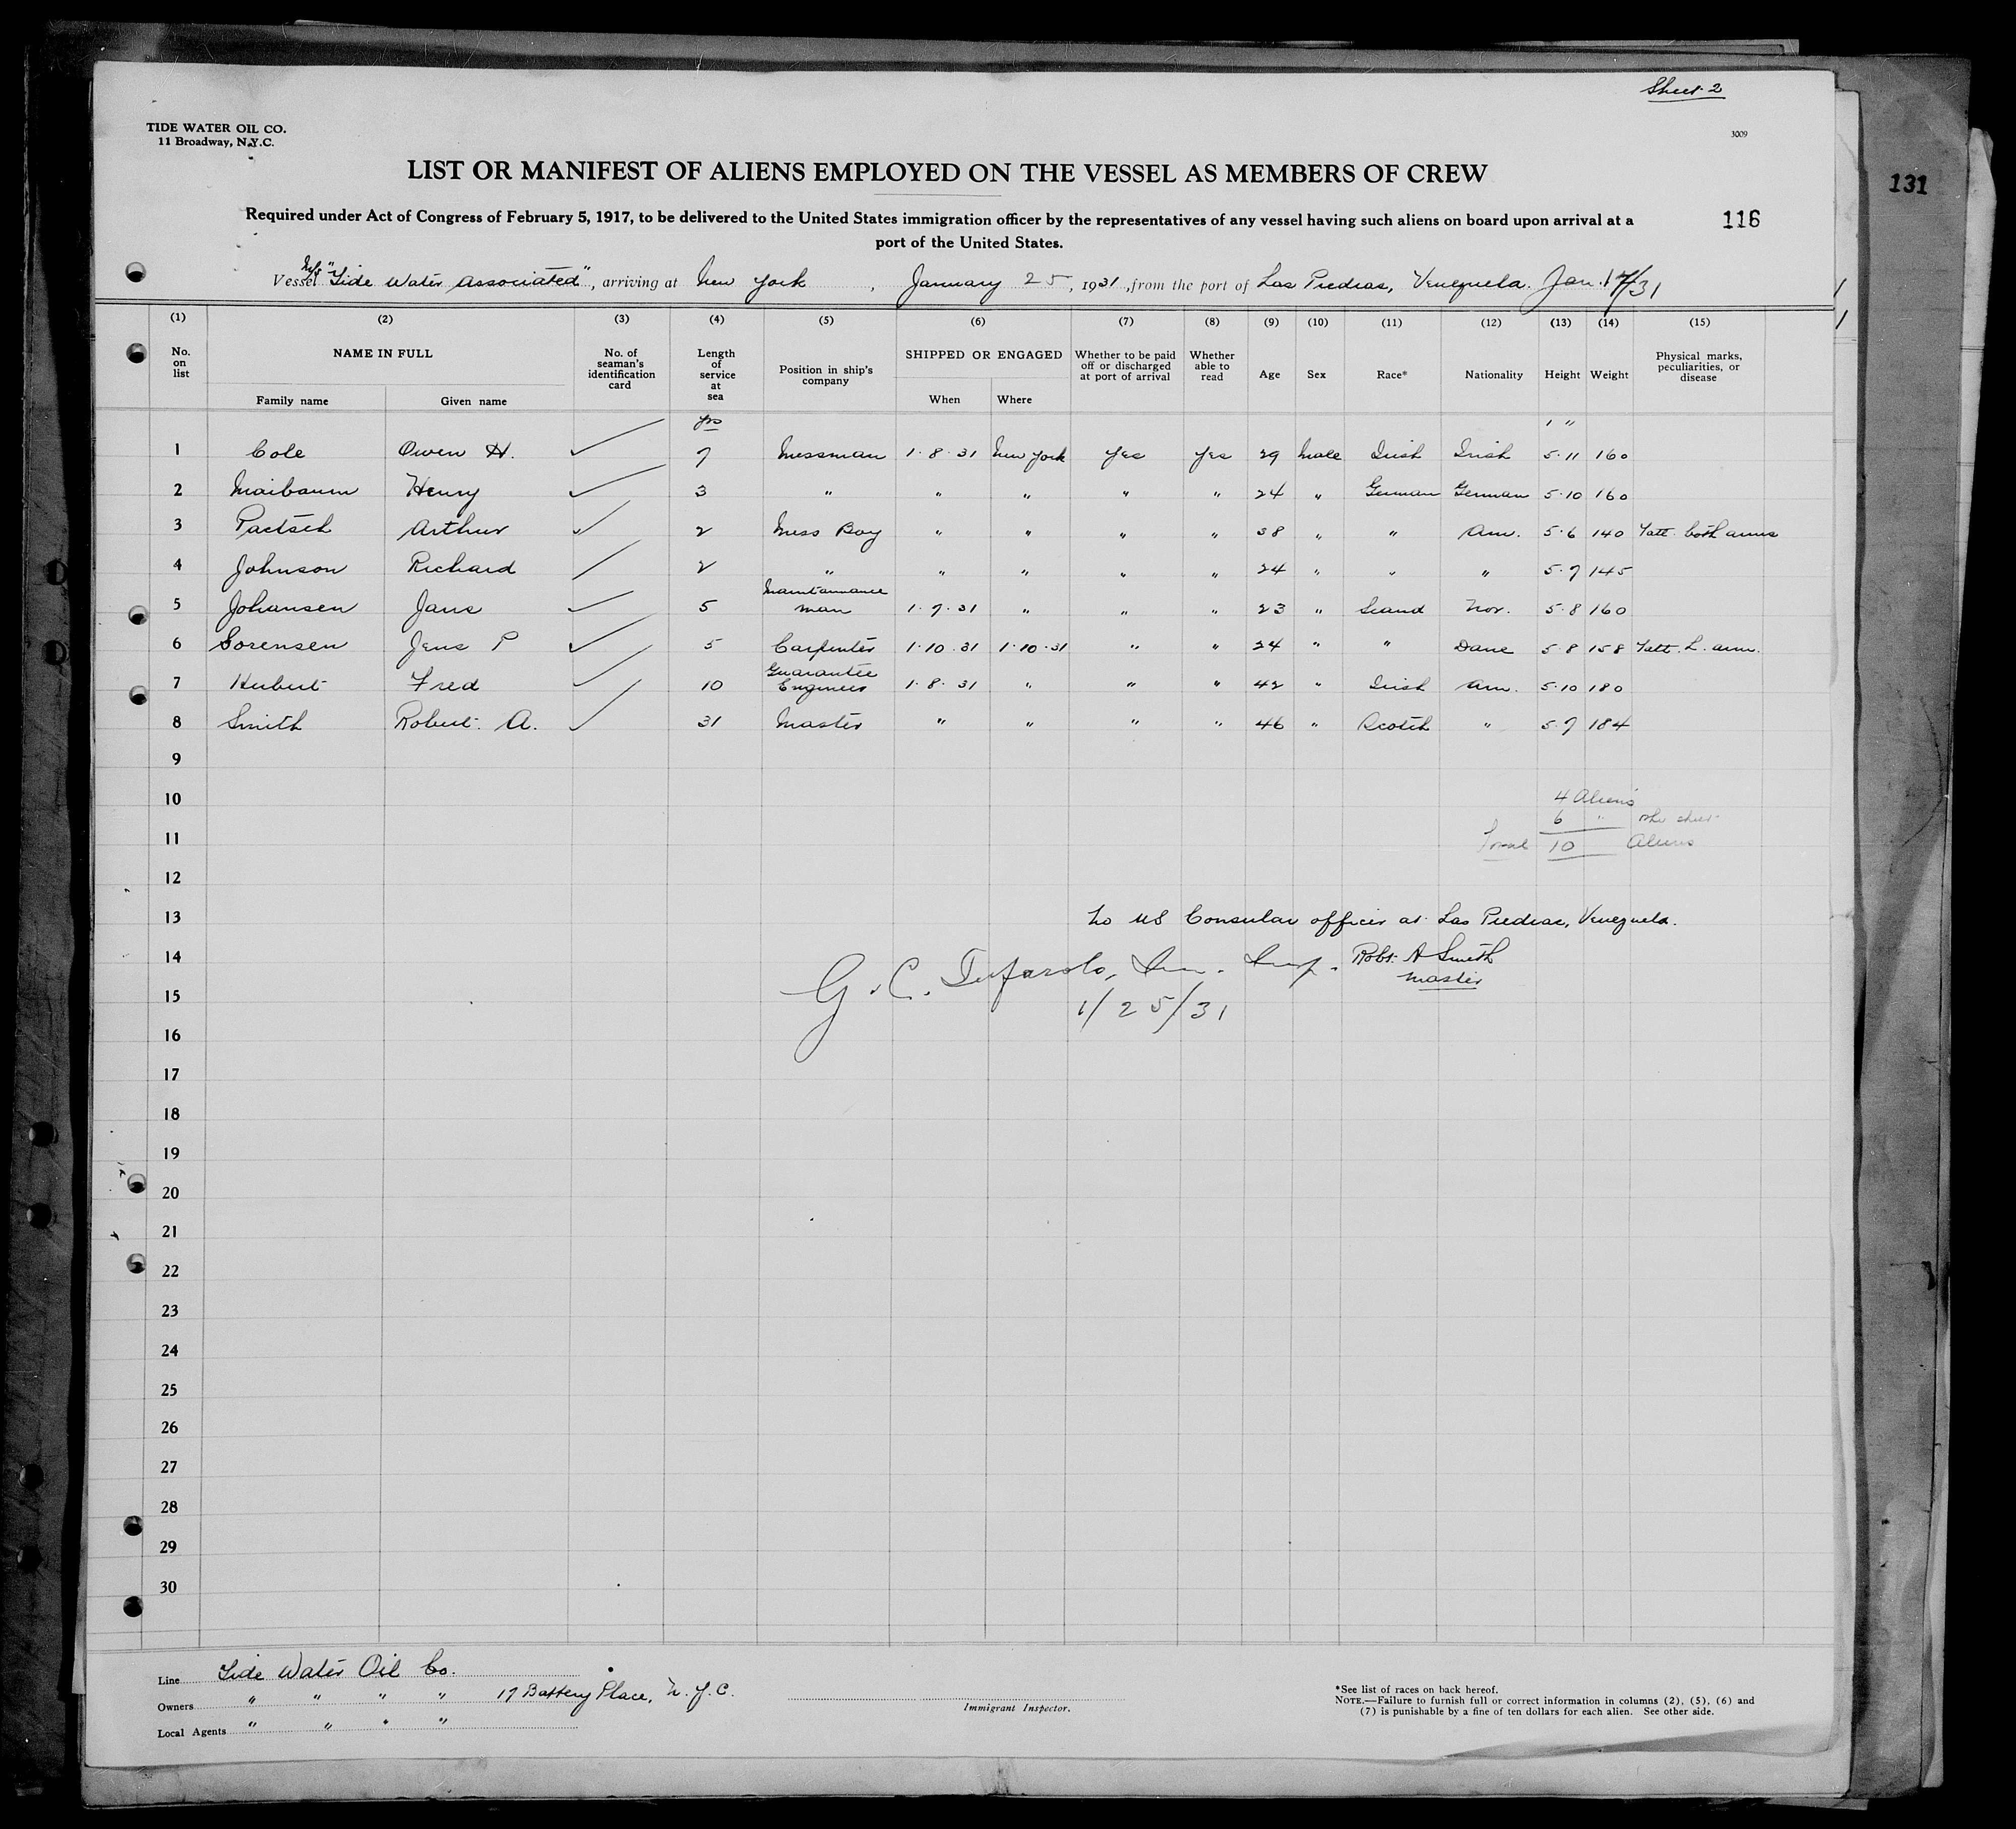 Sheet 2
TIDE WATER OIL CO.
11 Broadway, N.Y.C.
3009
131
LIST OR MANIFEST OF ALIENS EMPLOYED ON THE VESSEL AS MEMBERS OF CREW
Required under Act of Congress of February 5, 1917, to be delivered to the United States immigration officer by the representatives of any vessel having such aliens on board upon arrival at a
port of the United States.
116
Vessel M/S "Tide Water Associated", arriving at New York, January 25, 1931, from the port of Las Piedras, Venezuela. Jan. 17/31
(1) (2) (3) (4) (5) (6) (7) (8) (9) (10) (11) (12) (13) (14) (15)
No. on list NAME IN FULL Family name Given name No. of seaman's identification card Length of service at sea Position in ship's company SHIPPED OR ENGAGED When Where Whether to be paid off or discharged at port of arrival Whether able to read Age Sex Race* Nationality Height Weight Physical marks, peculiarities, or disease
yrs ' "
1 Cole Owen H. 7 Messman 1·8·31 New York Yes Yes 29 Male Irish Irish 5·11 160
2 Maibaum Henry 3 " " " " " 24 " German German 5·10 160
3 Paetsch Arthur 2 Mess Boy " " " " 38 " " Am. 5·6 140 Tatt. both arms
4 Johnson Richard 2 " " " " " 24 " " " 5·7 145
5 Johansen Jans 5 Maintainance man 1·7·31 " " " 23 " Scand Nor. 5·8 160
6 Sorensen Jens P 5 Carpenter 1·10·31 1·10·31 " " 24 " " Dane 5·8 158 Tatt. L. arm.
7 Hubert Fred 10 Guarantee Engineer 1·8·31 " " " 42 " Irish Am. 5·10 180
8 Smith Robert. A. 31 Master " " " " 46 " Scotch " 5·7 184
9
10
4 Aliens
6 " other sheet
11
Total 10 Aliens
12
13 No US Consular officer at Las Piedras, Venezuela.
14 Robt. A Smith
Master
G. C. Imm. Insp.
15
1/25/31
16
17
18
19
20
21
22
23
24
25
26
27
28
29
30
Line Tide Water Oil Co.
Owners " " " " 17 Battery Place, N.Y.C.
Local Agents " " " "
Immigrant Inspector.
*See list of races on back hereof.
NOTE.—Failure to furnish full or correct information in columns (2), (5), (6) and
(7) is punishable by a fine of ten dollars for each alien. See other side.